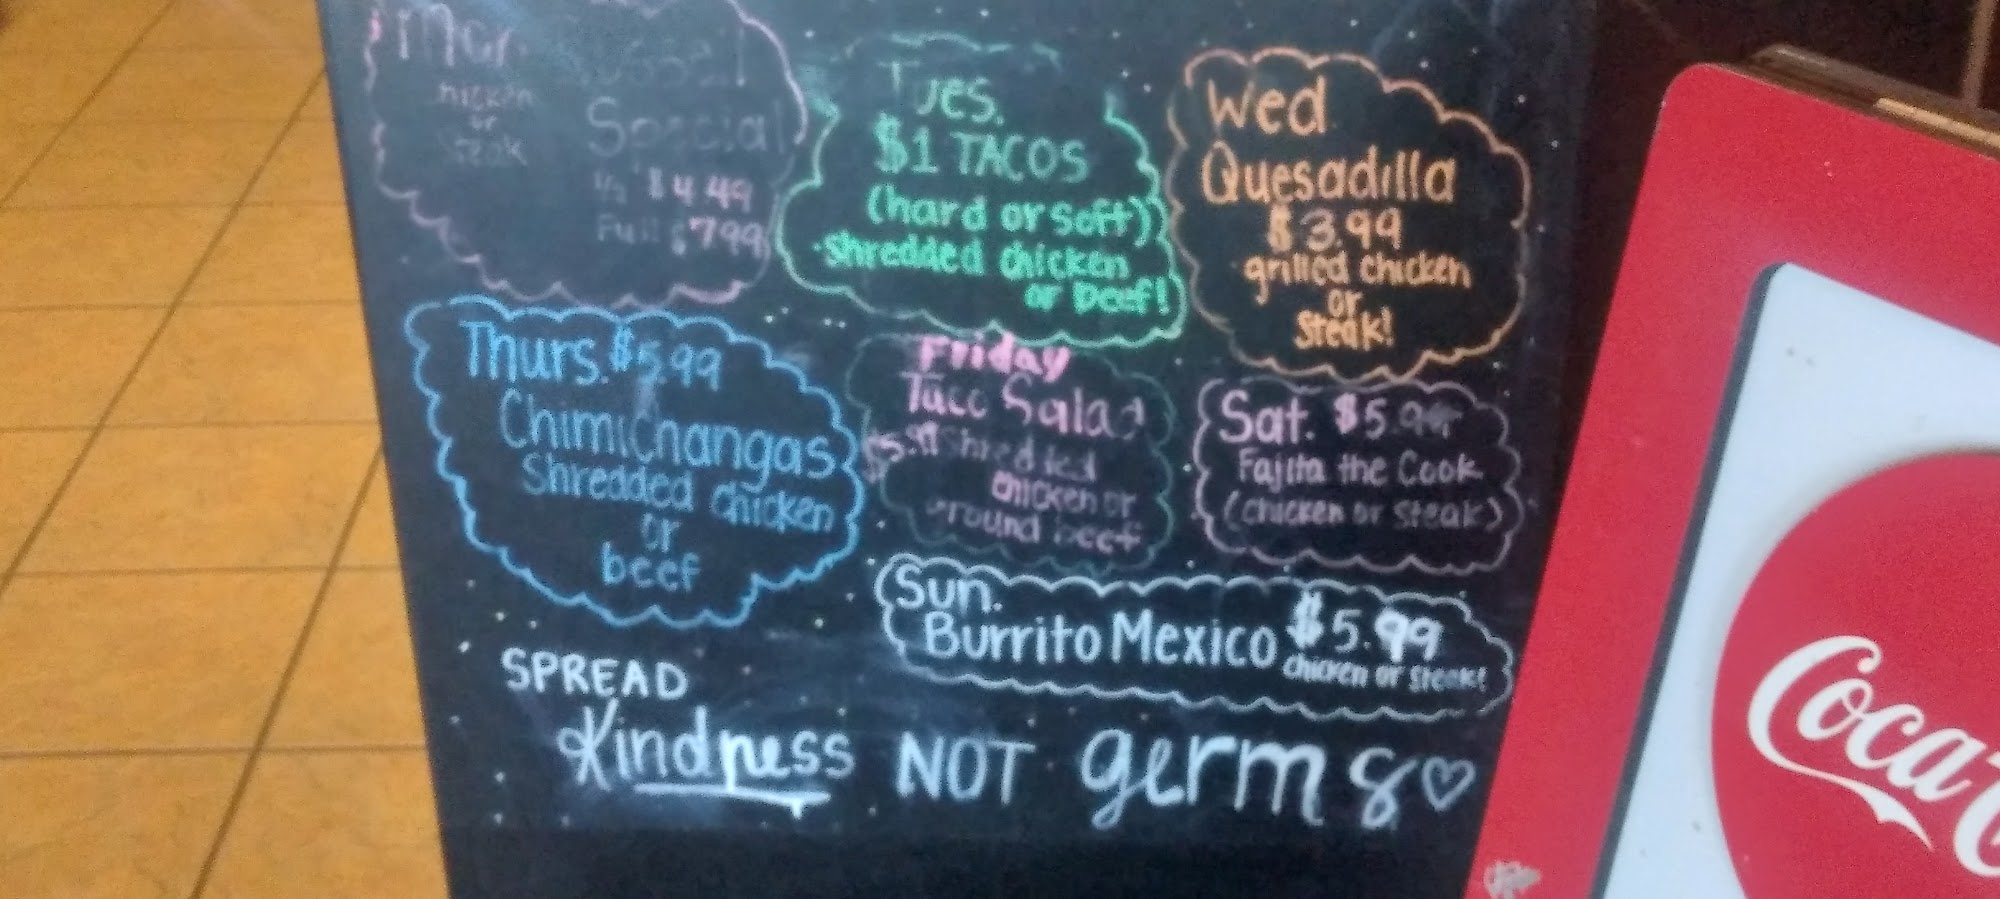 Mon.
chicken
or
steak
Special
1/2 $4.49
Full $7.99
Tues.
$1 TACOS
(hard or soft))
shredded chicken
or beef!
Wed
Quesadilla
$3.99
grilled chicken
or
steak!
Thurs. $5.99
Chimichangas
Shredded chicken
or
beef
Friday
Taco Salad
shredded
chicken or
ground beef
Sat. $5.99
Fajita the Cook
(chicken or steak)
Sun.
Burrito Mexico $5.99
chicken or steak!
SPREAD
Kindness NOT germs
Coca